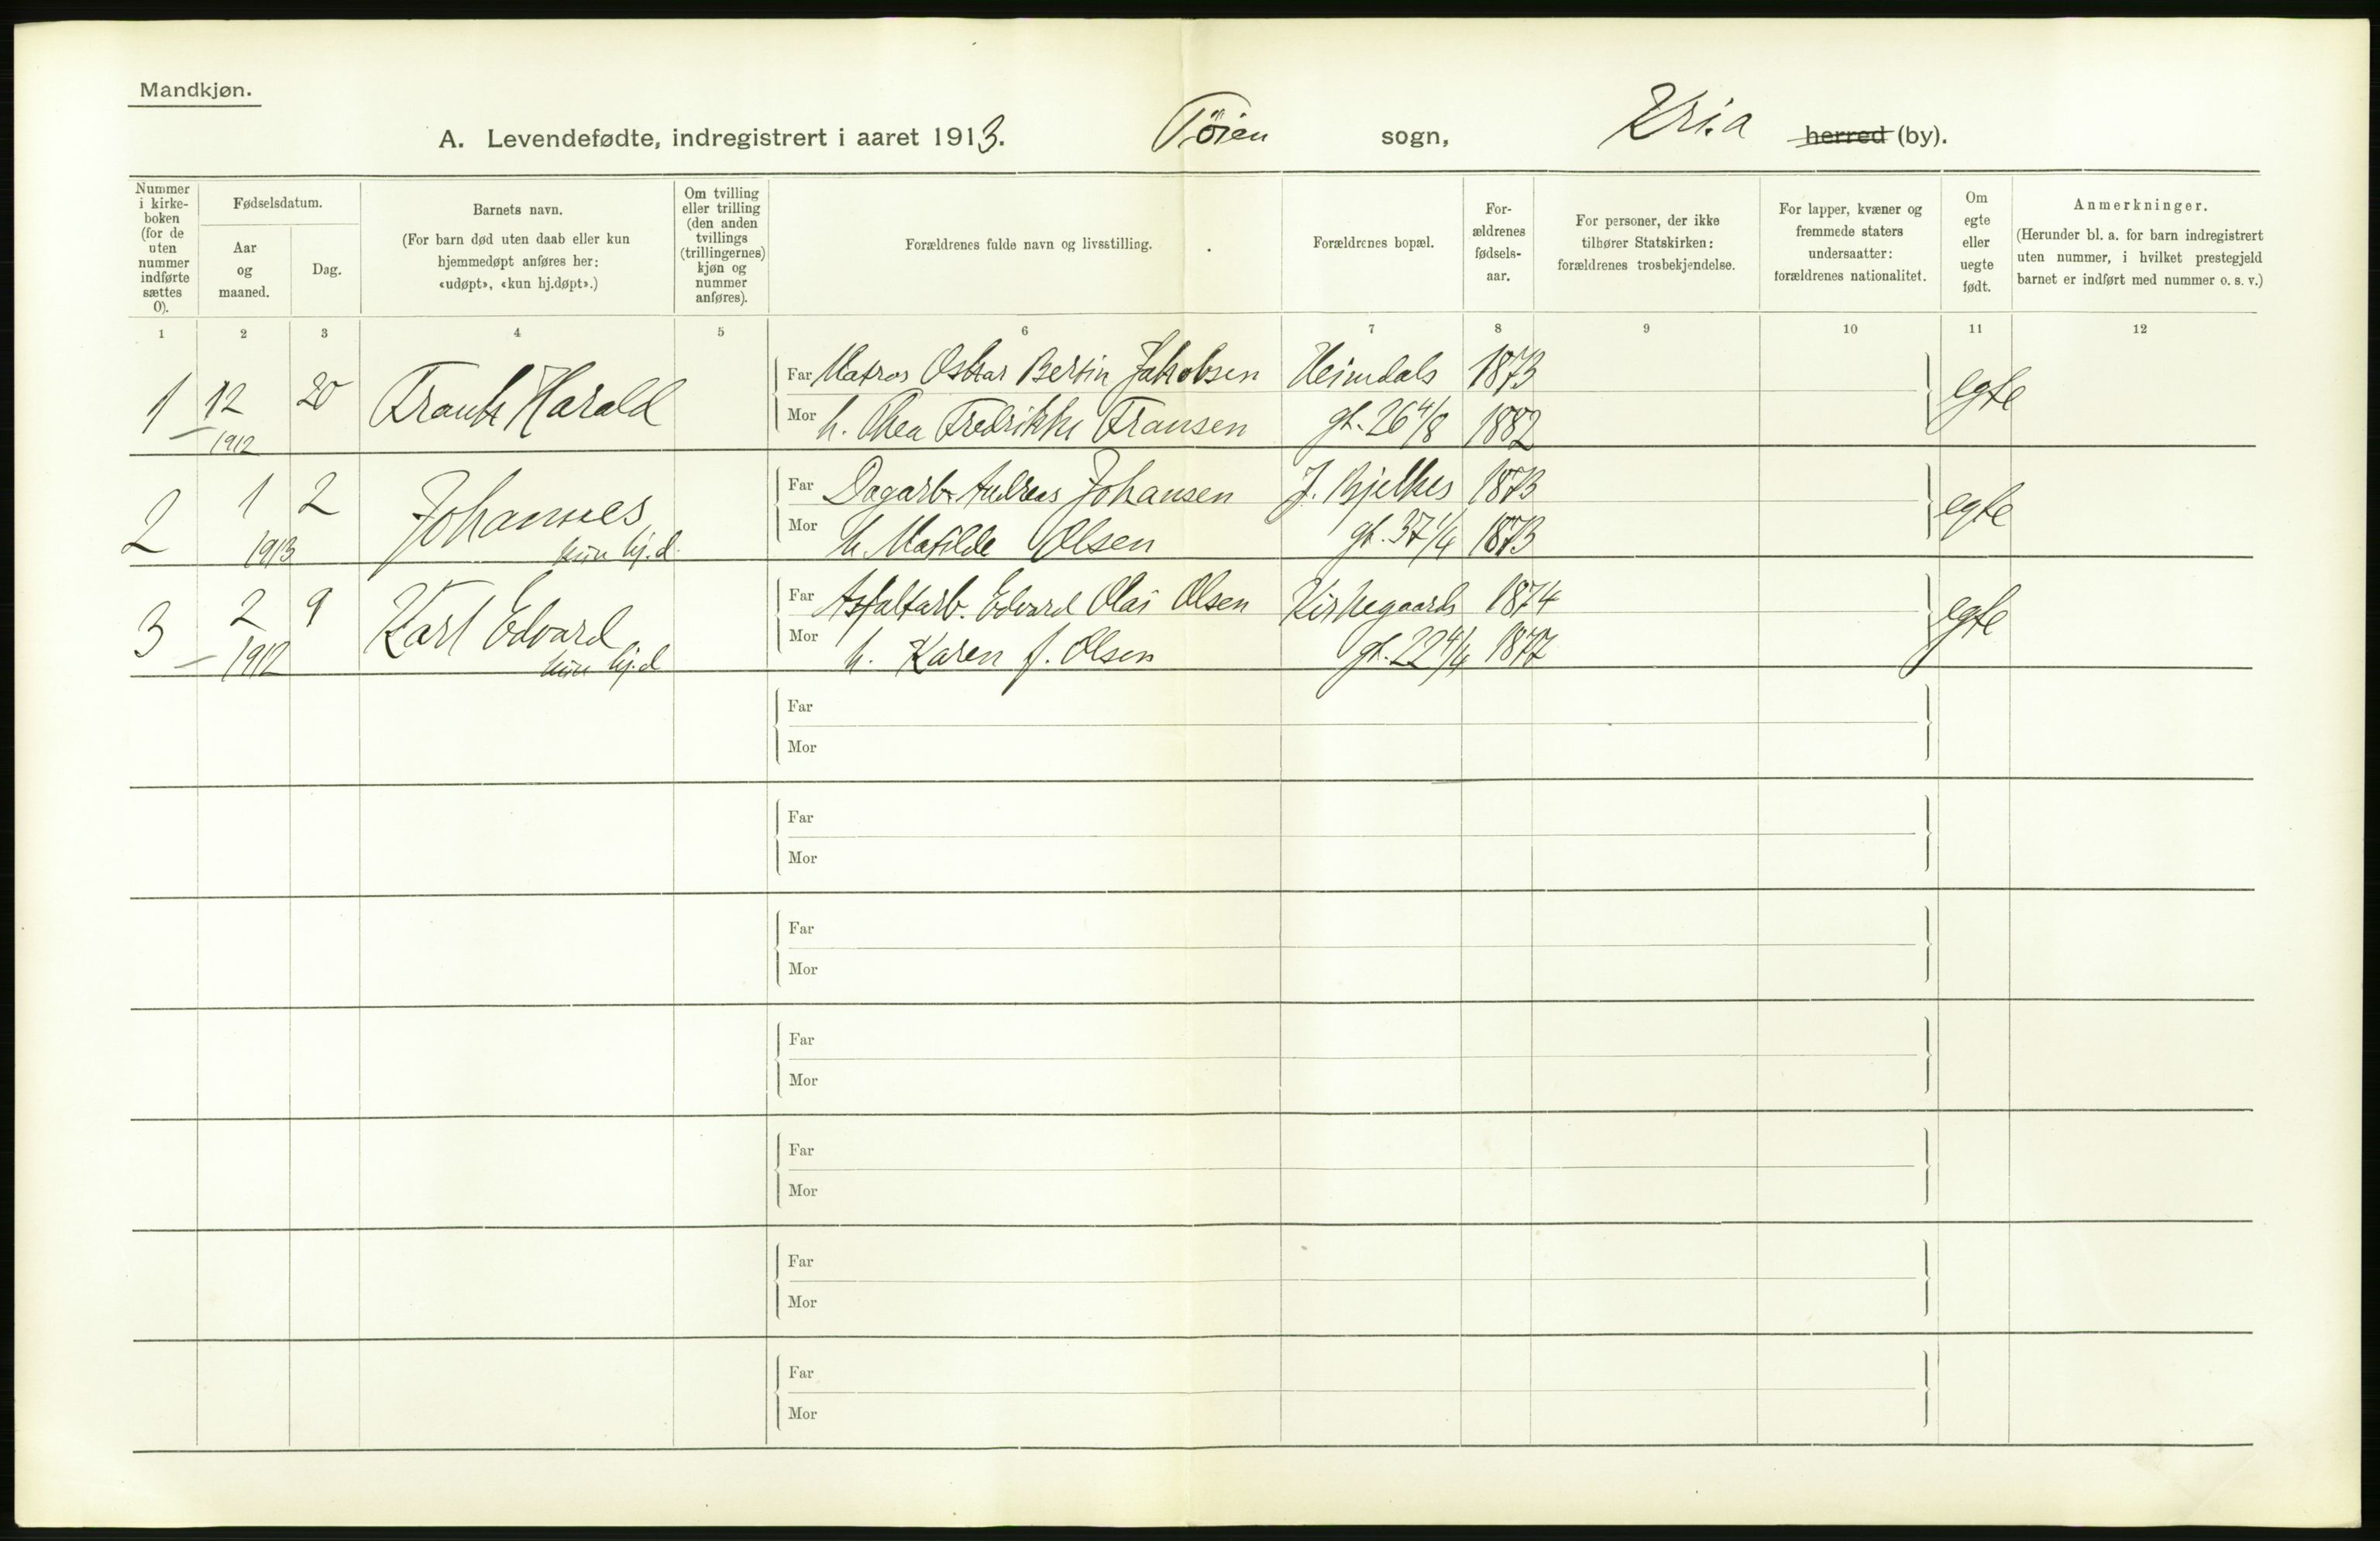 Mandkjøn.
A. Levendefødte, indregistrert i aaret 1913. Tøien sogn, Kr.i.a herred (by).
Nummer i kirke-boken (for de uten nummer indførte sættes 0).
Fødselsdatum.
Aar og maaned.
Dag.
Barnets navn.
(For barn død uten daab eller kun hjemmedøpt anføres her: «udøpt», «kun hj.døpt».)
Om tvilling eller trilling (den anden tvillings (trillingernes) kjøn og nummer anføres).
Forældrenes fulde navn og livsstilling.
Forældrenes bopæl.
For-ældrenes fødsels-aar.
For personer, der ikke tilhører Statskirken: forældrenes trosbekjendelse.
For lapper, kvæner og fremmede staters undersaatter: forældrenes nationalitet.
Om egte eller uegte født.
Anmerkninger.
(Herunder bl. a. for barn indregistrert uten nummer, i hvilket prestegjeld barnet er indført med nummer o. s. v.)
1 2 3 4 5 6 7 8 9 10 11 12
1 12 20 Frantz Harald Far Matros Oskar Bertin Jakobsen Heimdals 1873 egte
1912 Mor h. Thea Fredrikke Fransen gt. 26 4/8 1882
2 1 2 Johannes Far Dagarb. Andreas Johansen J. Bjelkes 1873 egte
1913 kun hj.d. Mor h. Matilde Olsen gt. 37 1/4 1873
3 2 9 Karl Edvard Far Asfaltarb. Edvard Olai Olsen Kirkegaards 1874 egte
1912 kun hj.d Mor h. Karen f. Olsen gt. 22 4/4 1877
Far
Mor
Far
Mor
Far
Mor
Far
Mor
Far
Mor
Far
Mor
Far
Mor